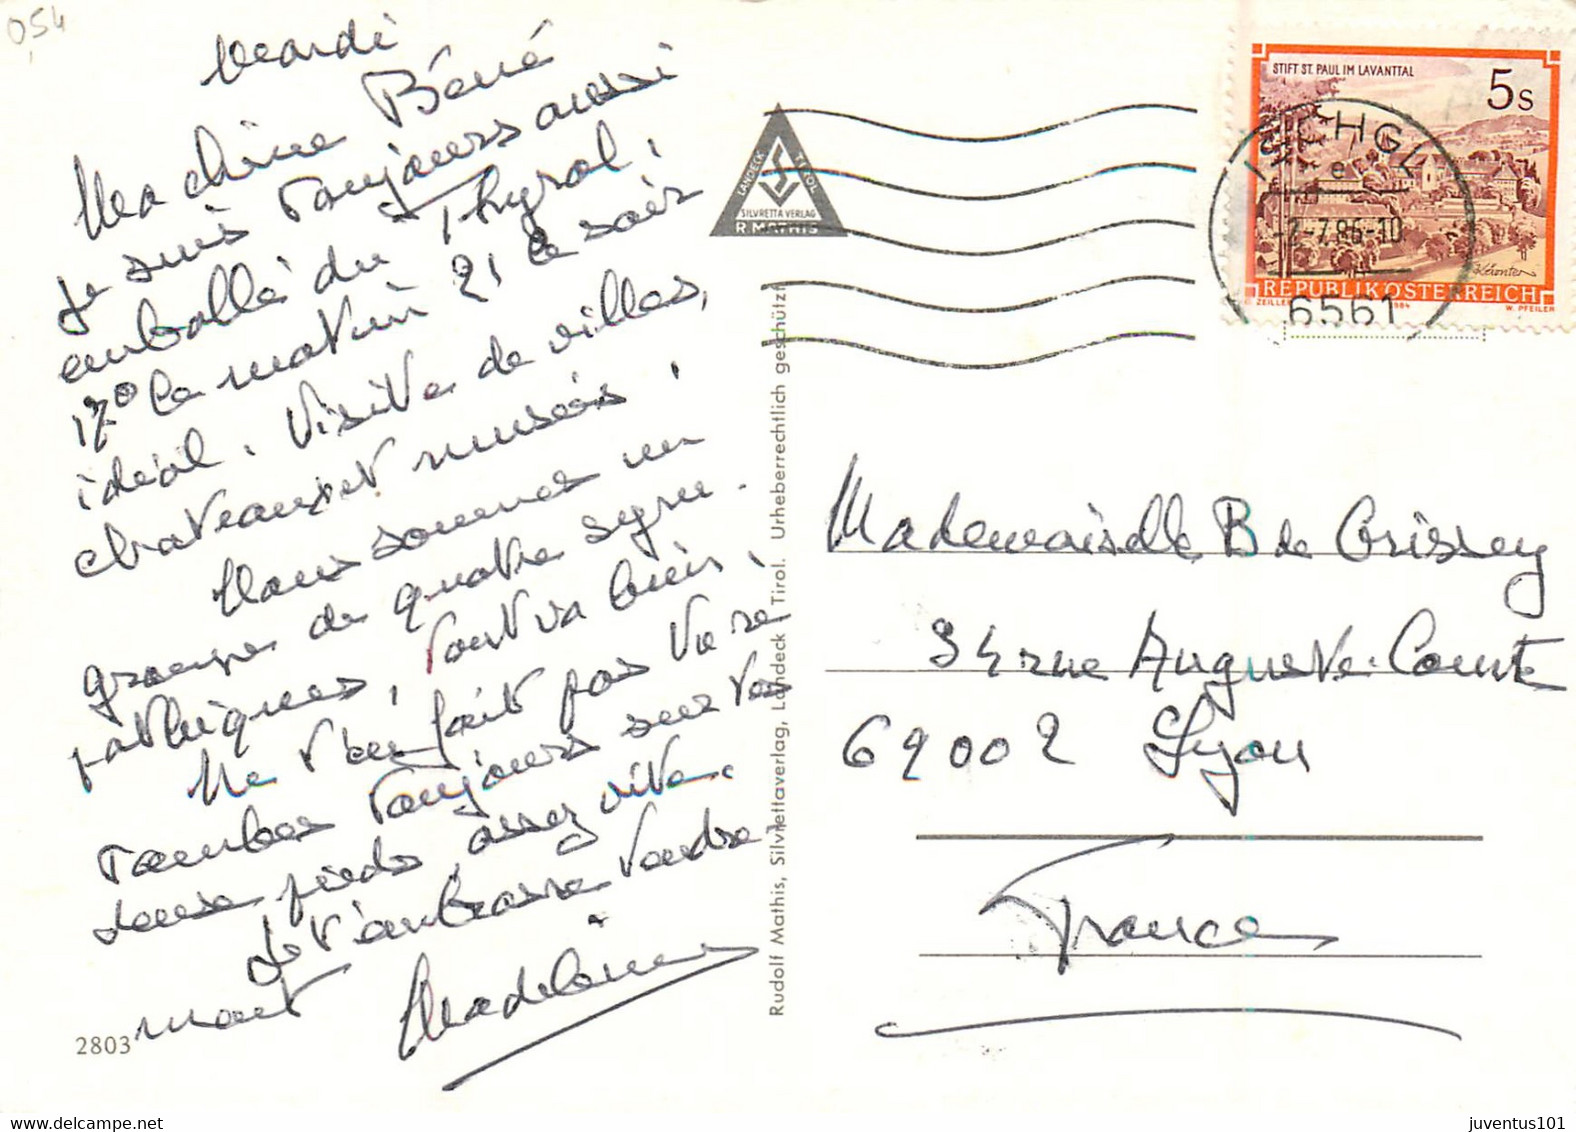 0,54
Mardi
Ma chère Béné
Je suis toujours aussi
emballé du Thyrol,
17° le matin 21 le soir
idéal. Visite de villes,
chateaux et musées,
Nous sommes un
groupe de quatre sym-
pathiques, tout va bien,
Ne t'en fait pas tu re
tombes toujours sur tes
pieds, assez vite.
Je t'embrasse tendre
ment Madeleine
2803
LANDECK TIROL
SILVRETTA VERLAG
R. MATHIS
Rudolf Mathis, Silvrettaverlag, Landeck Tirol. Urheberrechtlich geschützt
STIFT ST. PAUL IM LAVANTTAL
5s
REPUBLIK ÖSTERREICH
W. PFEILER
ISCHGL
e
-2.-7.86-10
6561
Mademoiselle B de Crissey
34 rue Auguste Comte
69002 Lyon
France
juventus101